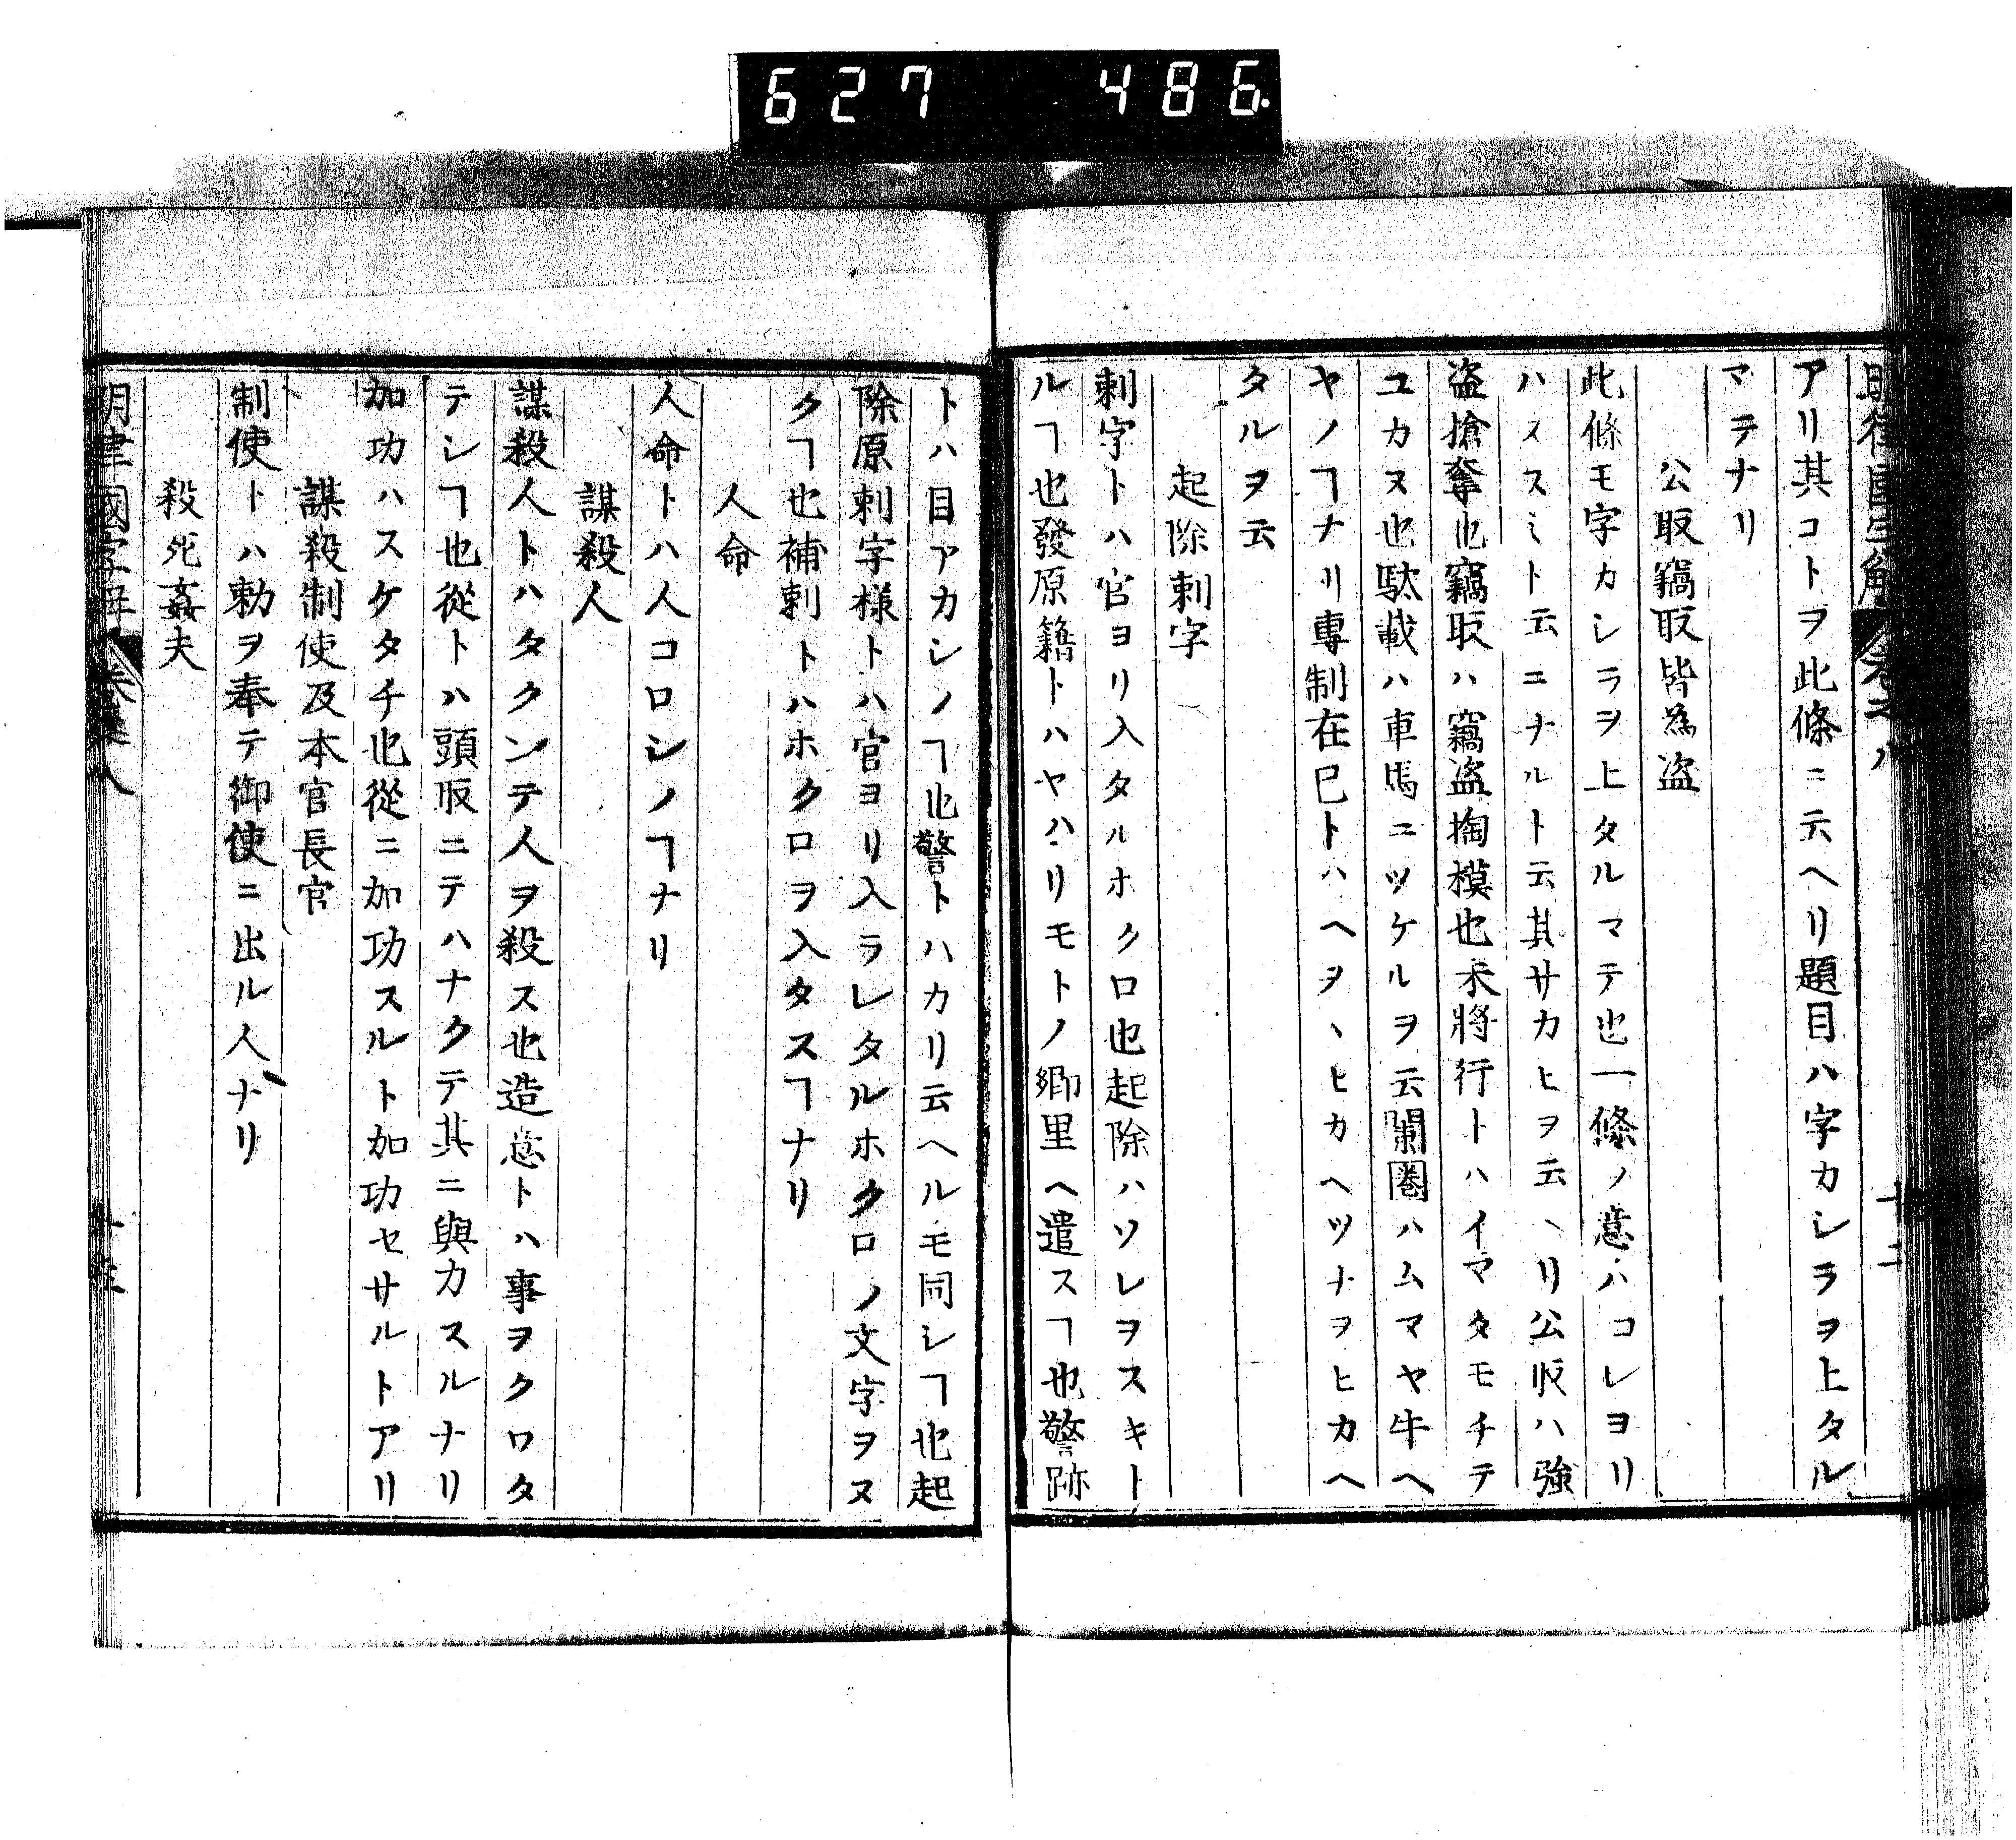 627 486
明律國字解 卷之八 十二
アリ其コトヲ此條ニ示ヘリ題目ハ字カシラヲ上タル
マテナリ
公取竊取皆為盗
此條モ字カシラヲ上タルマテ也一條ノ意ハコレヨリ
ハスミト云ニナルト云其サカヒヲ云ヘリ公取ハ強
盗搶奪也竊取ハ竊盗掏模也未將行トハイマタモチテ
ユカヌ也駄載ハ車馬ニツケルヲ云闌圏ハムマヤ牛ヘ
ヤノヿナリ專制在已トハヘヲヽヒカヘツナヲヒカヘ
タルヲ云
起除刺字
刺字トハ官ヨリ入タルホクロ也起除ハソレヲスキト
ルヿ也發原籍トハヤハリモトノ郷里ヘ遣スヿ也警跡
トハ目アカシノヿ也警トハカリ云ヘルモ同シヿ也起
除原刺字様トハ官ヨリ入ラレタルホクロノ文字ヲヌ
クヿ也補刺トハホクロヲ入タスヿナリ
人命
人命トハ人コロシノヿナリ
謀殺人
謀殺人トハタクンテ人ヲ殺ス也造意トハ事ヲクワタ
テシヿ也從トハ頭取ニテハナクテ其ニ與力スルナリ
加功ハスケタチ也從ニ加功スルト加功セサルトアリ
謀殺制使及本官長官
制使トハ勅ヲ奉テ御使ニ出ル人ナリ
殺死姦夫
明律國字解 卷之八